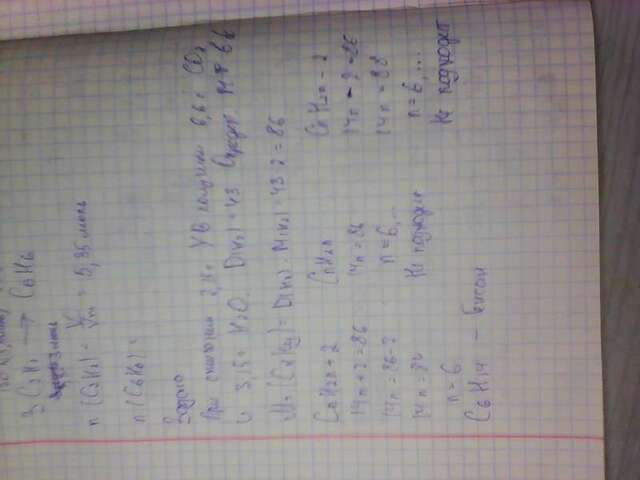 3 C₂H₂ → C₆H₆
n (C₂H₂) = V/Vm = 5,35 моль
n (C₆H₆) =
Задача
При сжигании УВ получили 6,6 г CO₂
и 3,15 г H₂O. D(H₂) = 43
M (CxHy) = D(H₂) · M(H₂) = 43 · 2 = 86
CnH2n+2 CnH2n CnH2n-2
14n+2=86 14n=86 14n-2=86
14n=86-2 n=6,... 14n=88
14n=84 Не подходит n=6,...
n=6 Не подходит
C₆H₁₄ - Гексан